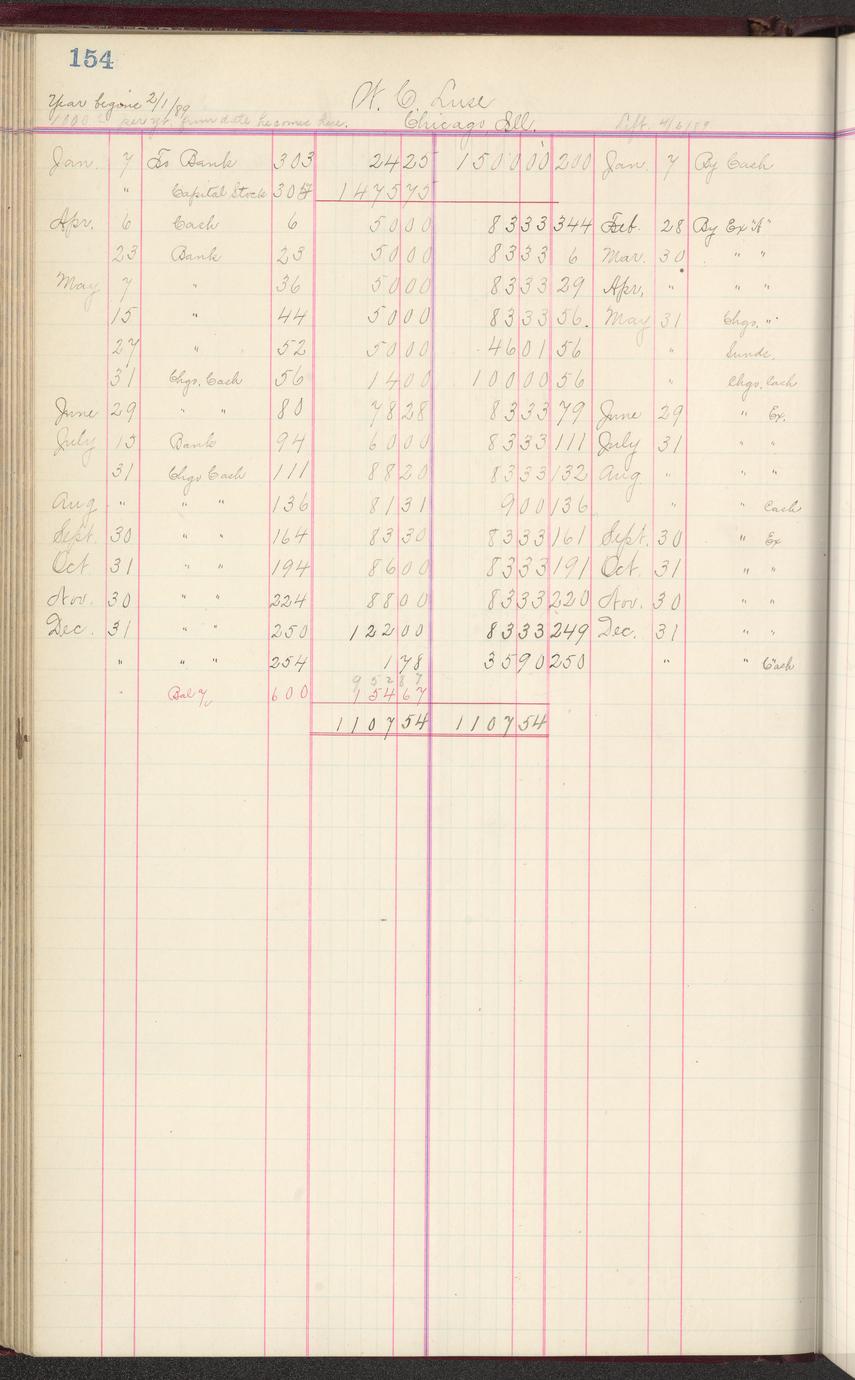 154
W. C. Luse
Year begins 2/1/89
1000 00 per yr. from date becomes due.
Chicago Ill. Left. 4/6/89
Jan. 7 To Bank 303 24 25 1500 00 200 Jan. 7 By Cash
" Capital Stock 307 1475 75
Apr. 6 Cash 6 50 00 83 33 344 Feb. 28 By Ex "A"
23 Bank 23 50 00 83 33 6 Mar. 30 " "
May 7 " 36 50 00 83 33 29 Apr. " " "
15 " 44 50 00 83 33 56. May 31 Chgs. "
27 " 52 50 00 46 01 56 " Sunds.
31 Chgs. Cash 56 14 00 100 00 56 " Chgs. Cash
June 29 " " 80 78 28 83 33 79 June 29 " Ex.
July 15 Bank 94 60 00 83 33 111 July 31 " "
31 Chgs Cash 111 88 20 83 33 132 Aug " " "
Aug " " " 136 81 31 9 00 136 " " Cash
Sept. 30 " " 164 83 30 83 33 161 Sept. 30 " Ex
Oct. 31 " " 194 86 00 83 33 191 Oct. 31 " "
Nov. 30 " " 224 88 00 83 33 220 Nov. 30 " "
Dec. 31 " " 250 122 00 83 33 249 Dec. 31 " "
" " " 254 1 78 35 90 250 " " Cash
952 87
" Bal 600 154 67
1107 54 1107 54